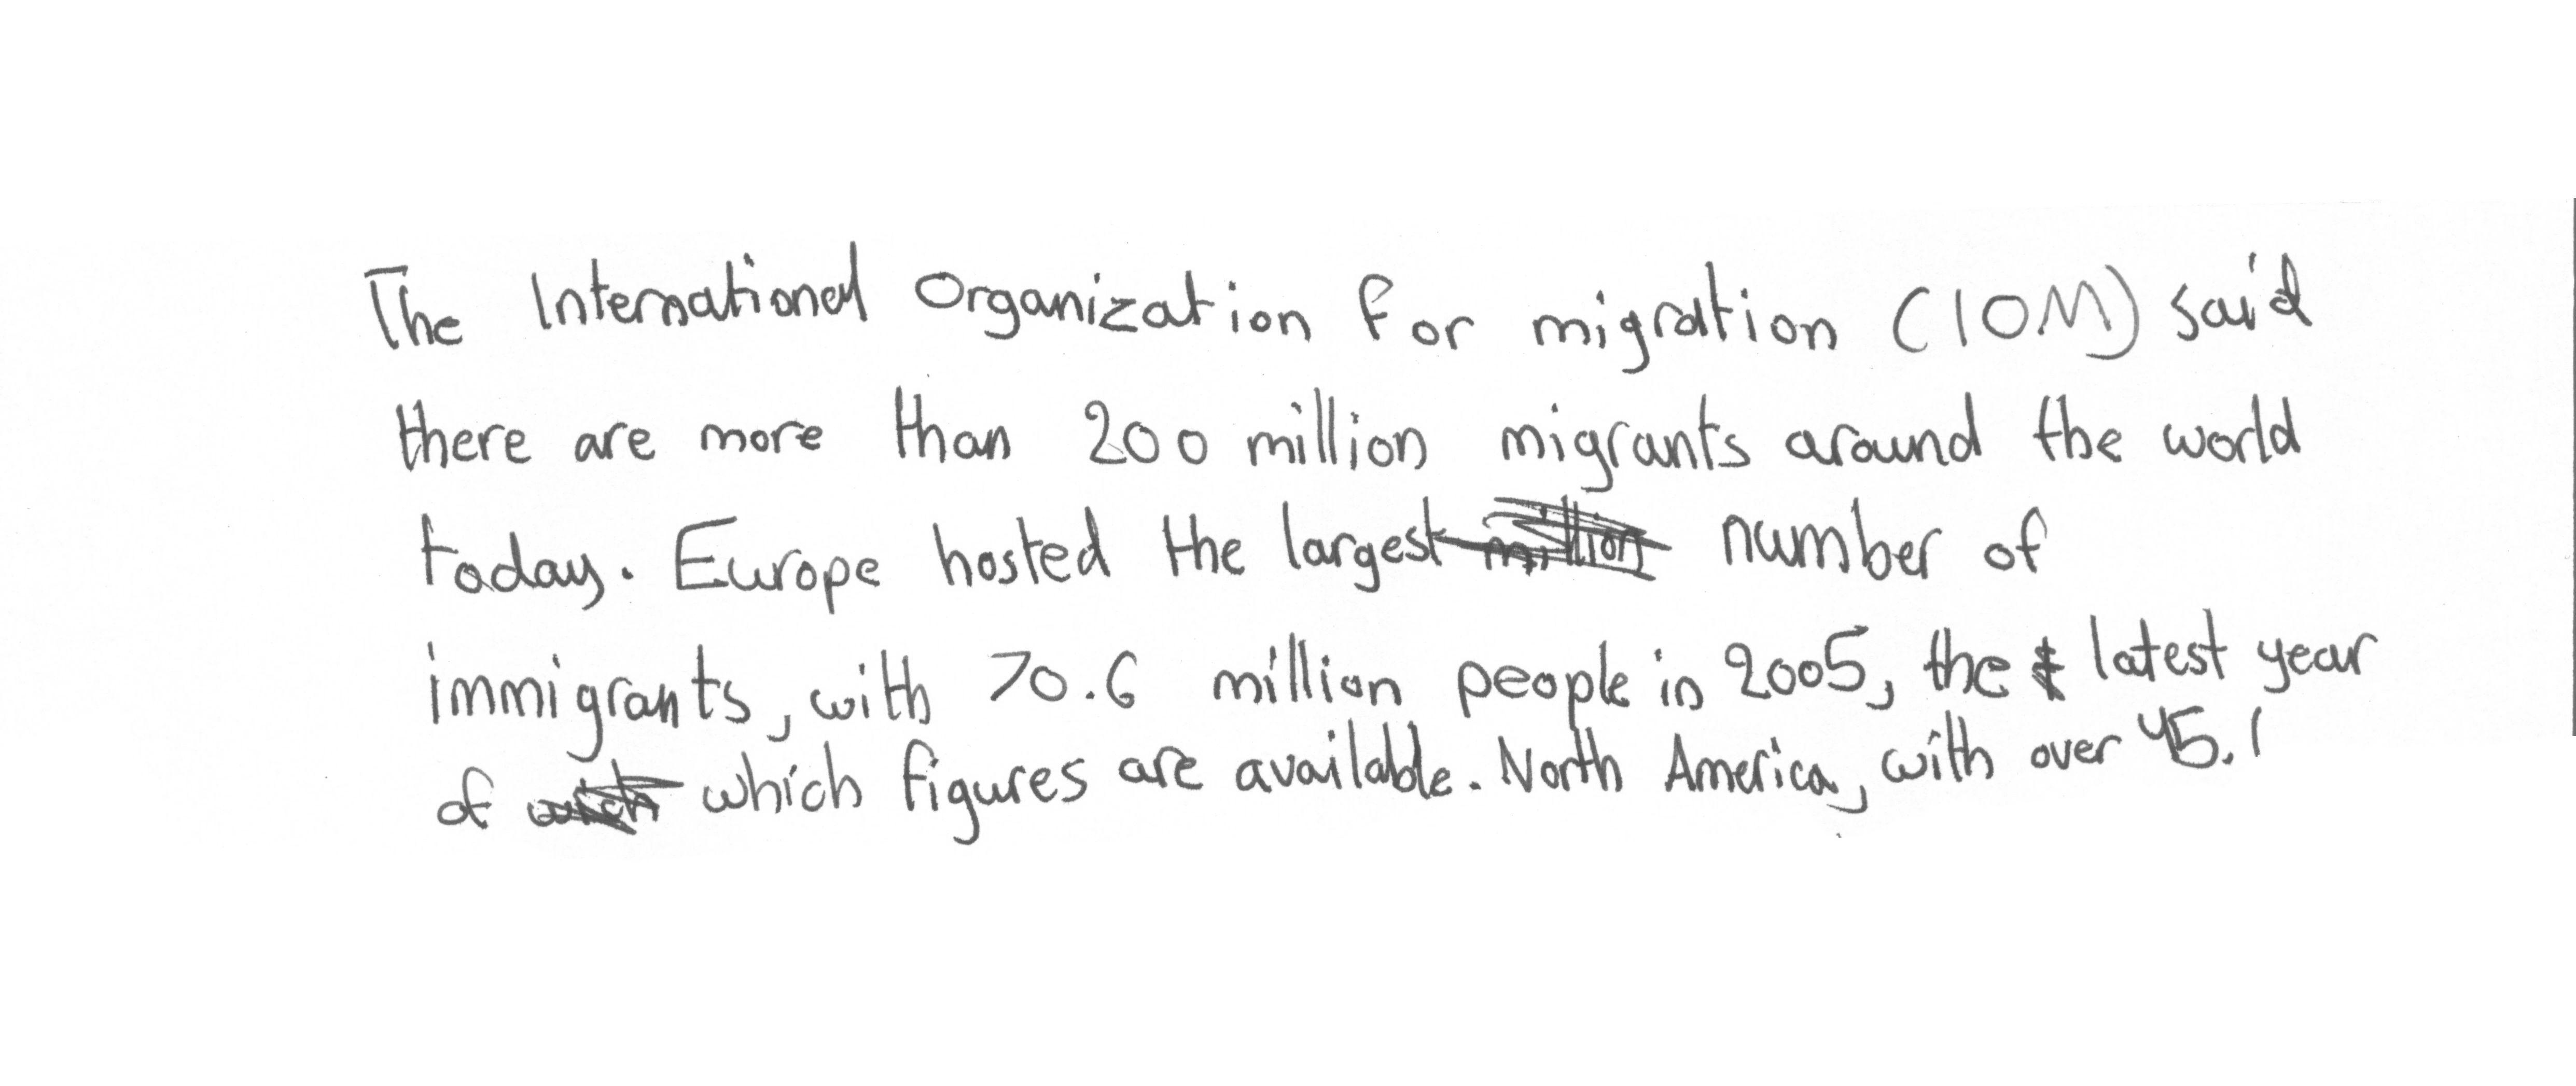 The International Organization for migration (IOM) said
there are more than 200 million migrants around the world
today. Europe hosted the largest number of
immigrants, with 70.6 million people in 2005, the latest year
of which figures are available. North America, with over 45.1